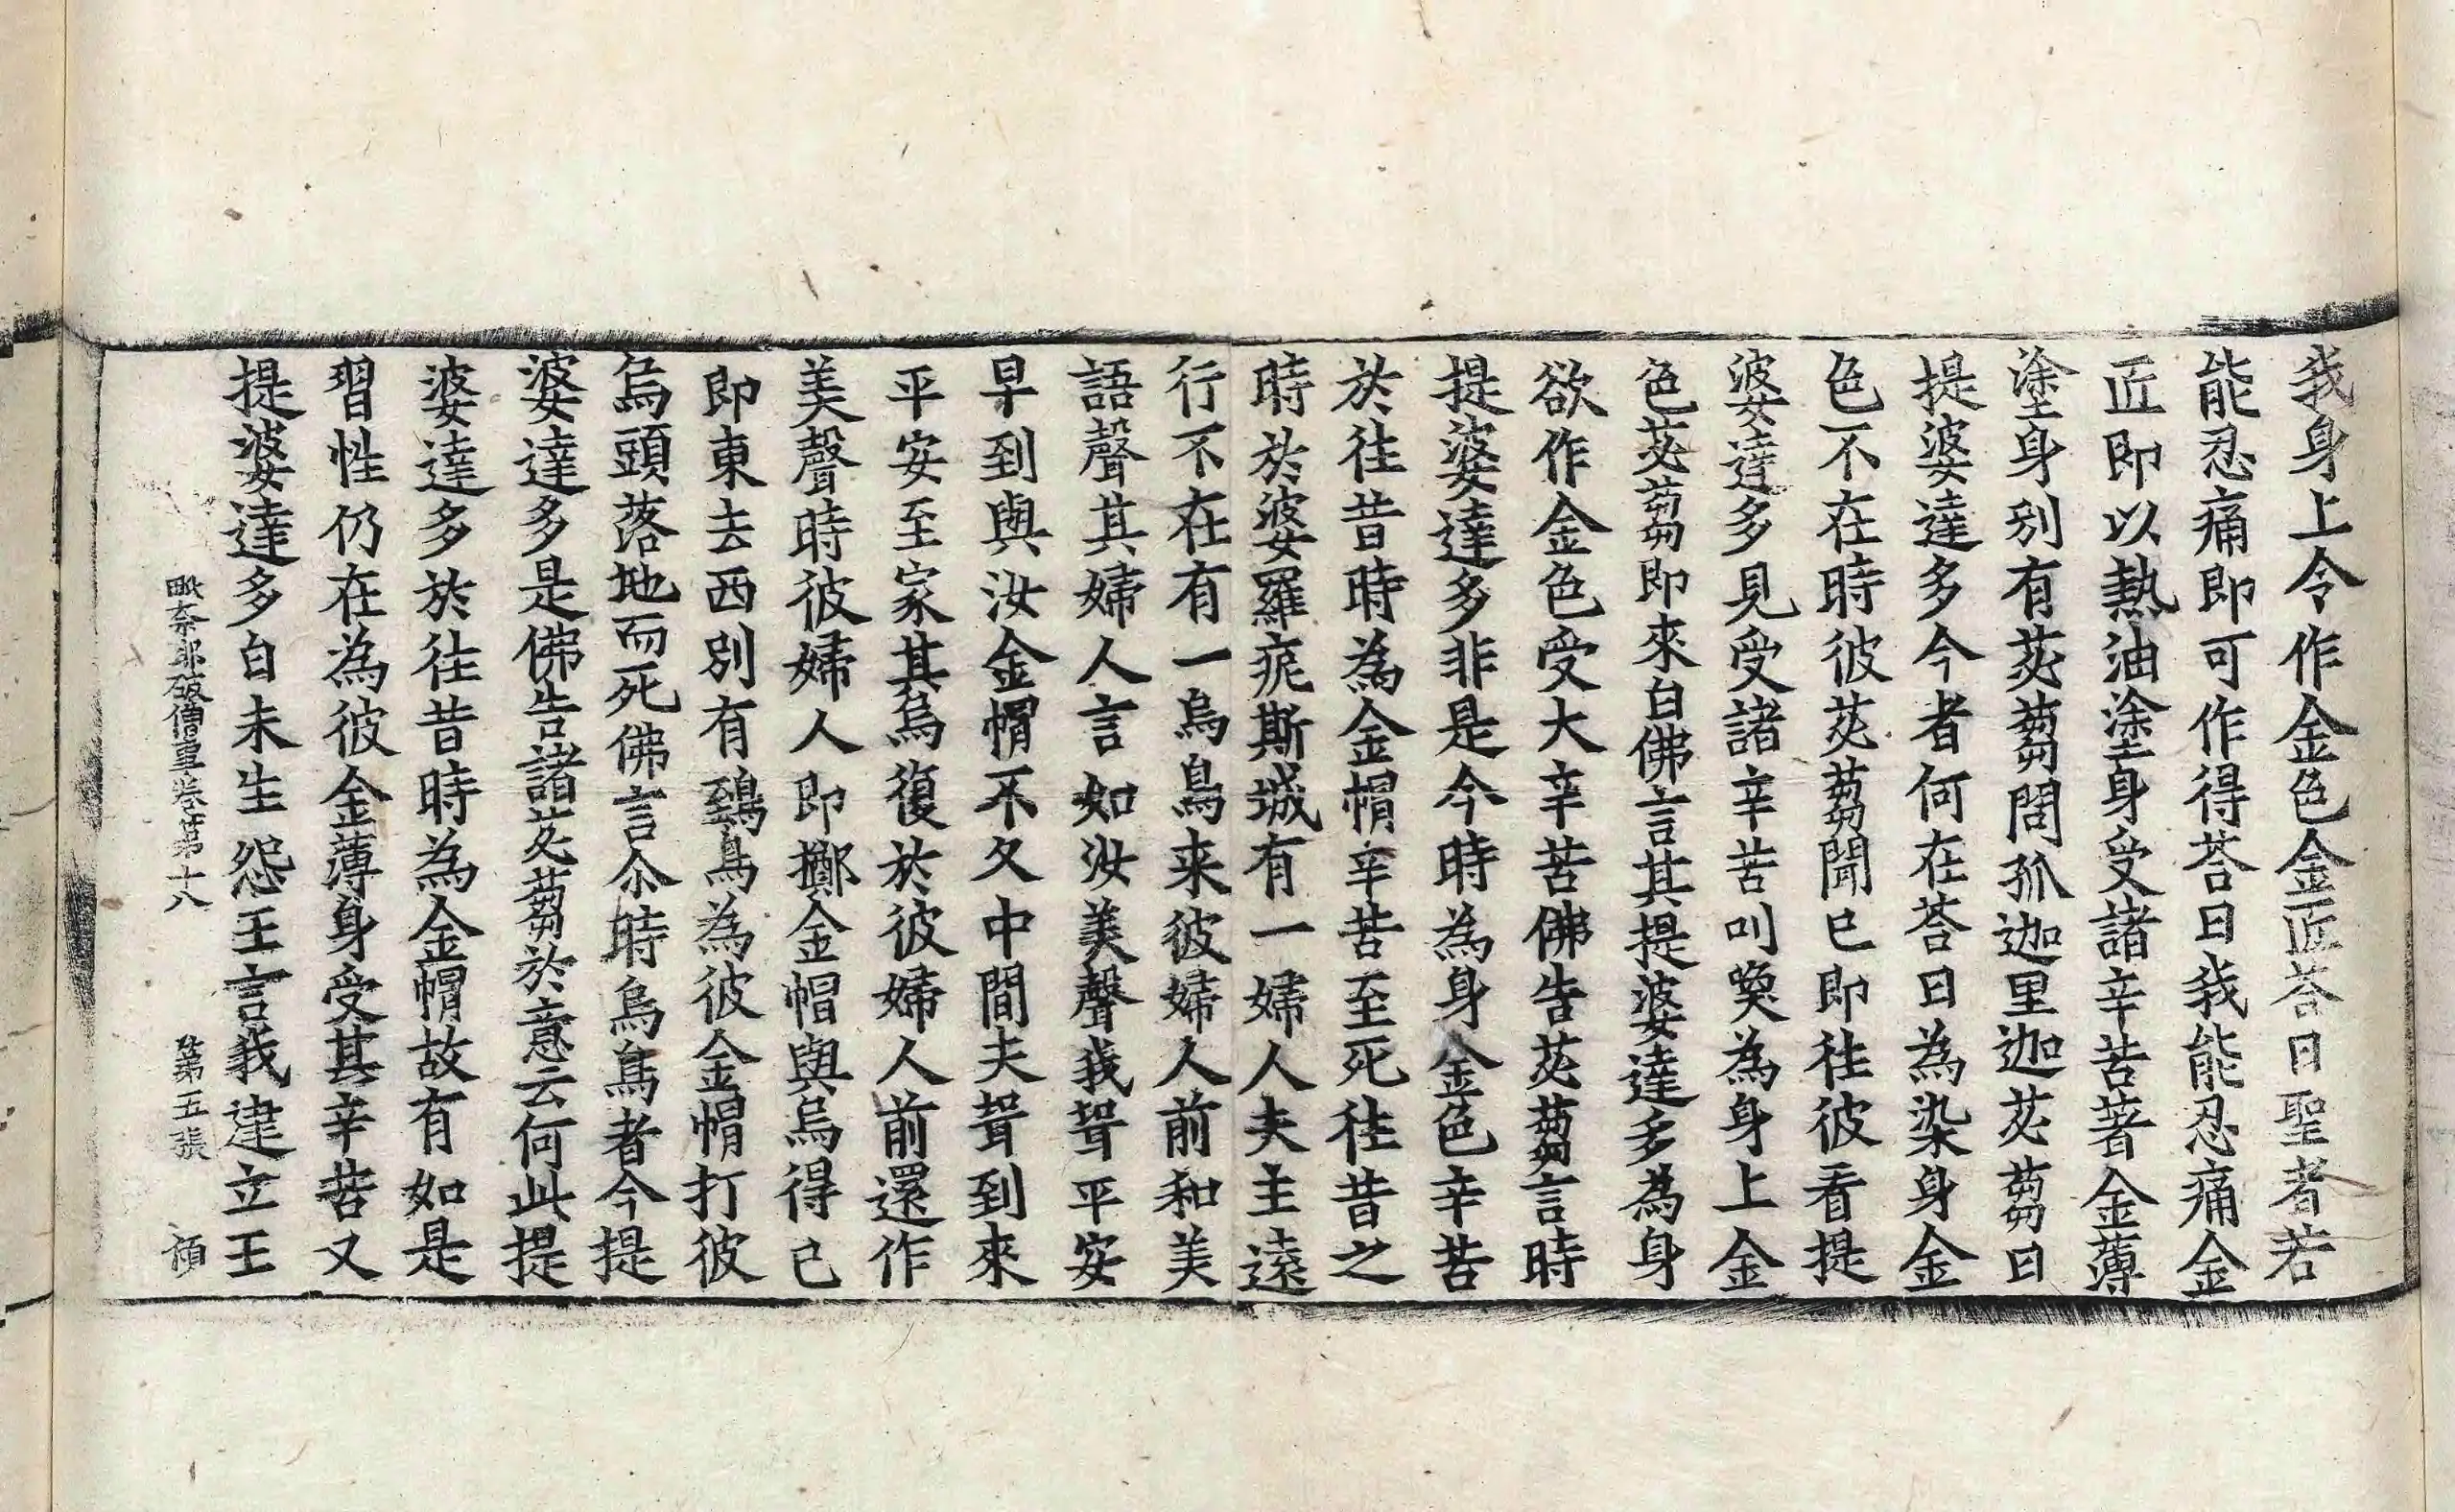 我身上令作金色金匠荅曰聖者若
能忍痛即可作得荅曰我能忍痛金
匠即以熱油塗身受諸辛苦著金薄
塗身別有苾蒭問孤迦里迦苾蒭曰
提婆達多今者何在荅曰為染身金
色不在時彼苾蒭聞已即往彼看提
婆達多見受諸辛苦叫喚為身上金
色苾蒭即來白佛言其提婆達多為身
欲作金色受大辛苦佛告苾蒭言時
提婆達多非是今時為身金色辛苦
於往昔時為金帽辛苦至死往昔之
時於婆羅痆斯城有一婦人夫主遠
行不在有一烏鳥来彼婦人前和美
語聲其婦人言如汝美聲我聟平安
早到與汝金帽不久中間夫聟到來
平安至家其烏復於彼婦人前還作
美聲時彼婦人即擲金帽與烏得已
即東去西別有鵄鳥為彼金帽打彼
烏頭落地而死佛言尒時烏鳥者今提
婆達多是佛告諸苾蒭於意云何此提
婆達多於往昔時為金帽故有如是
習性仍在為彼金薄身受其辛苦又
提婆達多白未生怨王言我建立王
毗奈耶破僧事卷第十八 第五張 頙